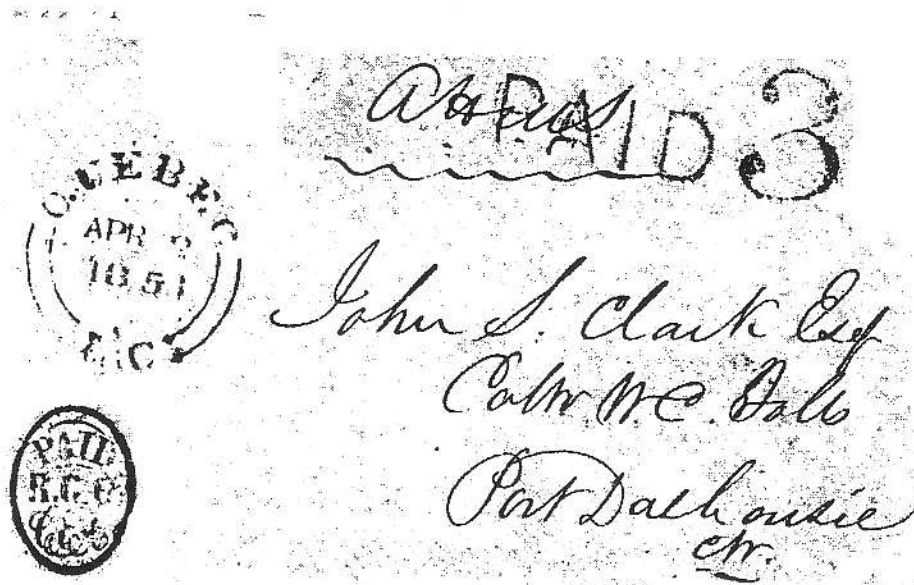 PAID 3
QUEBEC
APR
1851
L.C.
John S. Clark Esq
Collr W. C. Tolls
Port Dalhousie
CW.
PAID